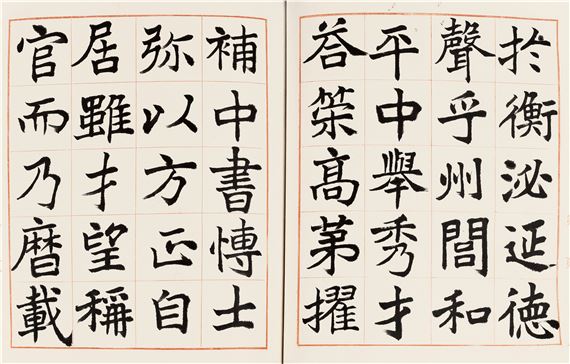 扵衡泌延德
聲乎州閭和
平中舉秀才
荅筞髙苐擢
補中書愽士
弥以方正自
居雖才望稱
官而乃曆載